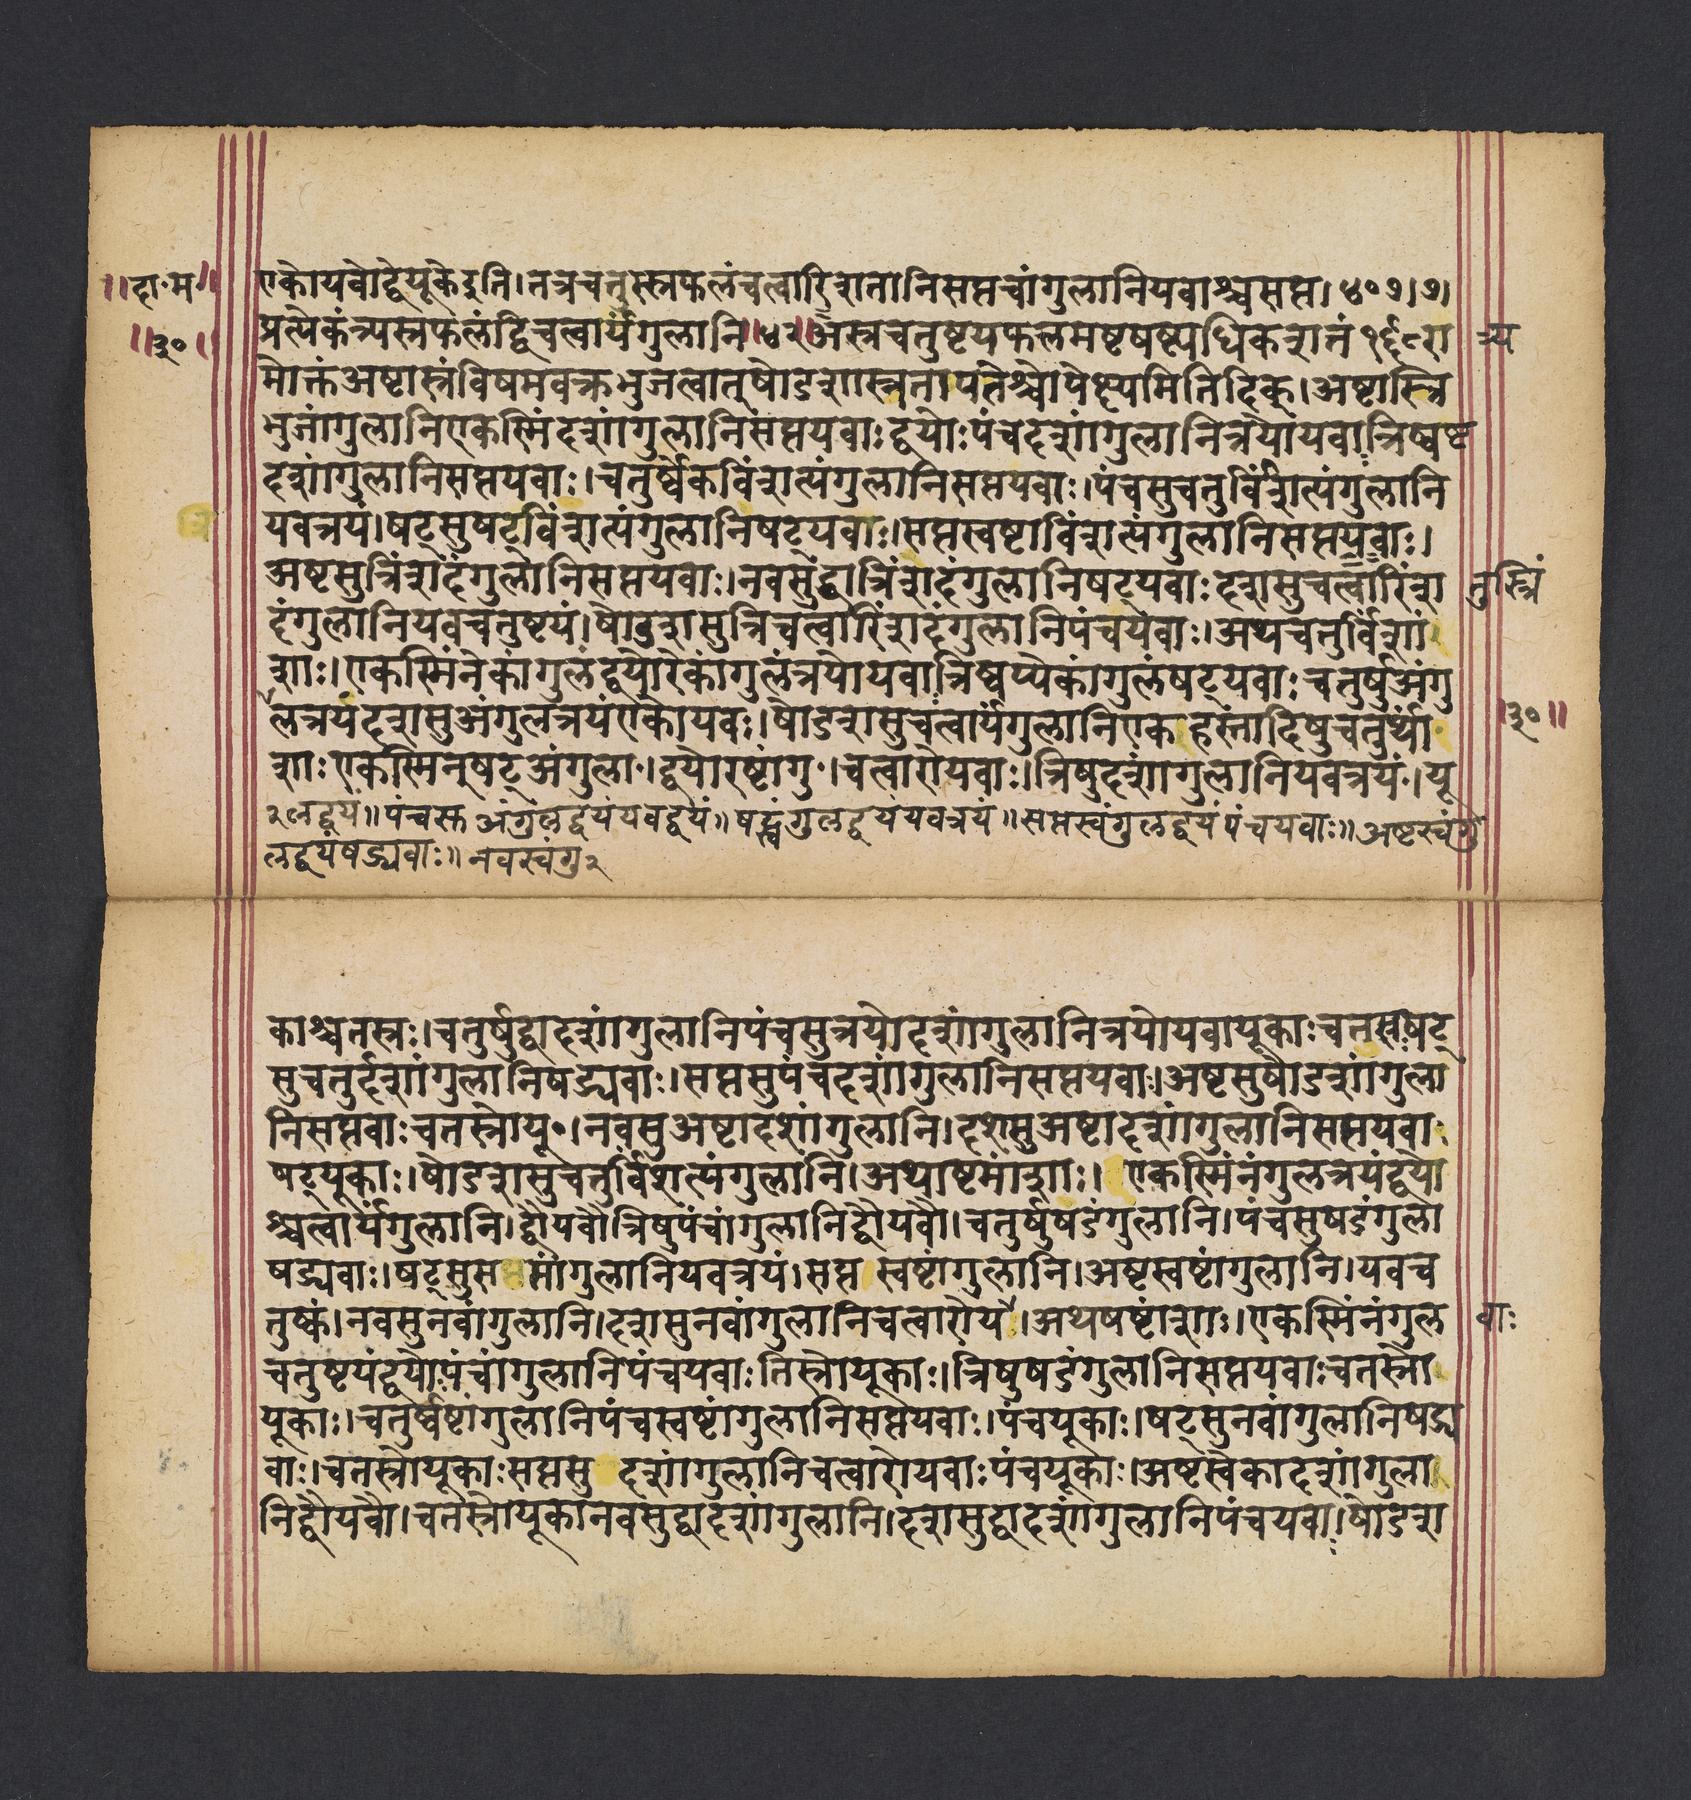 ॥दा॰म॰॥ एकोयवोद्वेयूकेइति।तत्रचतुस्त्रफलंचत्वारिशतानिसप्तचांगुलानियवाश्चसप्त।४०७।७।
॥३०॥ प्रत्येकंत्र्यस्त्रफलंद्विचत्वार्यंगुलानि॥४२॥अस्त्रचतुष्टयफलमष्टषष्ट्यधिकशतं१६८रा त्र्य
मोक्तंअष्टास्त्रंविषमवक्रभुजत्वात्षोडशास्त्रतापतेश्चोपेक्ष्यमितिदिक्।अष्टास्त्रि
भुजांगुलानिएकस्मिंदशांगुलानिसप्तयवाःद्वयोःपंचदशांगुलानित्रयोयवास्त्रिष्वष्ट
दशांगुलानिसप्तयवाः।चतुर्ष्वेकविंशत्यंगुलानिसप्तयवाः।पंचसुचतुर्विंशत्यंगुलानि
यवत्रयं।षट्सुषट्विंशत्यंगुलानिषट्यवाः।सप्तस्वष्टाविंशत्यंगुलानिसप्तयवाः।
अष्टसुत्रिंशदंगुलानिसप्तयवाः।नवसुद्वात्रिंशदंगुलानिषट्यवाःदशसुचत्वारिंश तुस्त्रिं
दंगुलानियवचतुष्टयं।षोडशसुत्रिचत्वारिंशदंगुलानिपंचयवाः।अथचतुर्विंशां
शाः।एकस्मिंनेकांगुलंद्वयोरेकांगुलंत्रयोयवास्त्रिष्वप्येकांगुलंषट्यवाःचतुर्षुअंगु
लत्रयंदशसुअंगुलत्रयंएकोयवः।षोडशसुचत्वार्यंगुलानिएकहस्तादिषुचतुर्थां ॥३०॥
शाःएकस्मिनुषट्अंगुला॰।द्वयोरष्टांगु॰।चत्वारोयवाः।त्रिषुदशांगुलानियवत्रयं।यू
२लद्वयं॥पंचस्त अंगुलद्वयंयवद्वयं॥षट्स्वंगुलद्वयंयवत्रयं॥सप्तस्वंगुलद्वयंपंचयवाः॥अष्टस्वंगु
लद्वयंषड्यवाः॥नवस्वंगु२
काश्चतस्त्रः।चतुर्षुद्वादशांगुलानिपंचसुत्रयोदशांगुलानित्रयोयवायूकाःचतुस्त्रःषट्
सुचतुर्दशांगुलानिषड्यवाः।सप्तसुपंचदशांगुलानिसप्तयवाः।अष्टसुषोडशांगुला
निसप्तवाःचतस्त्रोयू॰।नवसुअष्टादशांगुलानि।दशसुअष्टादशांगुलानिसप्तयवाः
षट्यूकाः।षोडशसुचतुर्विंशत्यंगुलानि।अथाष्टमांशाः। एकस्मिंनंगुलत्रयंद्वयो
श्चत्वार्यंगुलानि।द्वौयवौत्रिषुपंचांगुलानिद्वौयवौ।चतुर्षुषडंगुलानि।पंचसुषडंगुला
षड्यवाः।षट्सुसप्तसांगुलानियवत्रयं।सप्त स्वष्टांगुलानि।अष्टस्वष्टांगुलानि।यवच
तुष्कं।नवसुनवांगुलानि।दशसुनवांगुलानिचत्वारोय।अथषष्टांशाः।एकस्मिंनंगुल वाः
चतुष्टयंद्वयोःपंचांगुलानिपंचयवाःतिस्त्रोयूकाः।त्रिषुषडंगुलानिसप्तयवाःचतस्त्रो
यूकाः।चतुर्ष्वष्टांगुलानिपंचस्वष्टांगुलानिसप्तयवाः।पंचयूकाः।षट्सुनवांगुलानिषड्य
वाः।चतस्त्रोयूकाःसप्तसु दशांगुलानिचत्वारोयवाःपंचयूकाः।अष्टस्वेकादशांगुला
निद्वौयवौ।चतस्त्रोयूकानवसुद्वादशांगुलानि।दशसुद्वादशांगुलानिपंचयवाः।षोडश